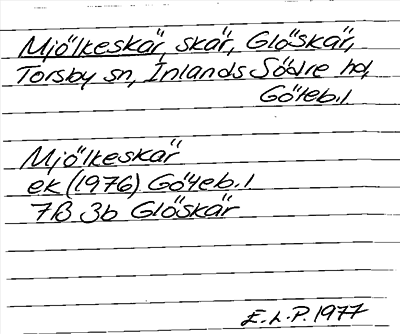 Mjölkeskär, skär, Glöskär,
Torsby sn, Inlands Södre hd,
Göteb.l
Mjölkeskär
ek (1976) Göteb.l
7B 3b Glöskär
E.L.P. 1977